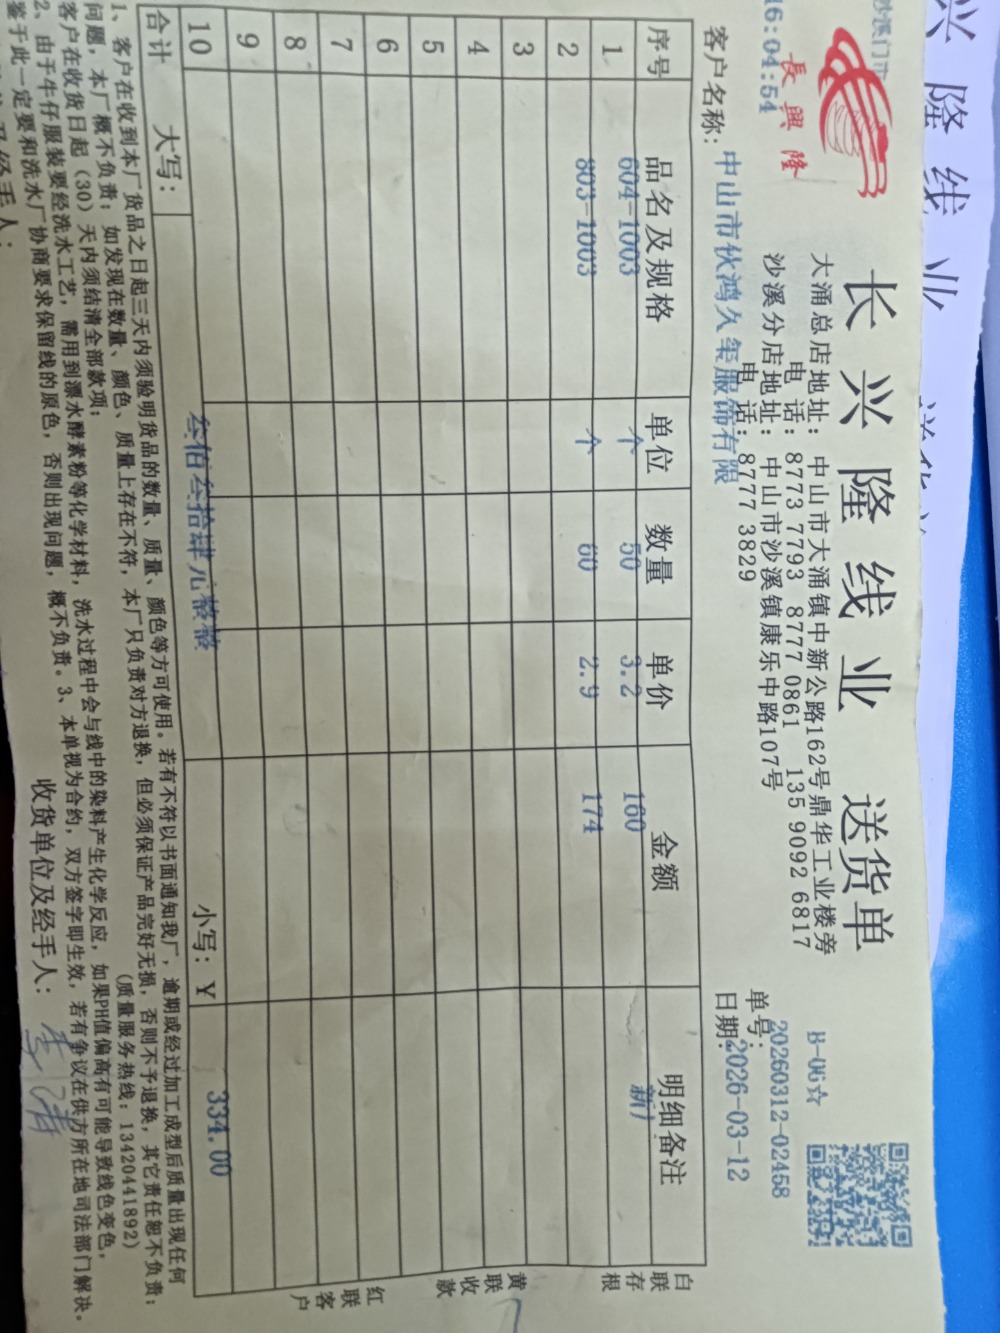 兴 隆 线 业
沙溪门市
16:04:54
長興隆
长 兴 隆 线 业 送货单
大涌总店地址：中山市大涌镇中新公路162号鼎华工业楼旁
电 话：8773 7793 8777 0861 135 9092 6817
沙溪分店地址：中山市沙溪镇康乐中路107号
电 话：8777 3829
B-06☆
单号：20260312-02458
日期：2026-03-12
客户名称：中山市伙鸿久玺服饰有限
序号 品名及规格 单位 数量 单价 金额 明细备注
1 604-1003 个 50 3.2 160 新厂
2 803-1003 个 60 2.9 174
3
4
5
6
7
8
9
10
合计 大写： 叁佰叁拾肆元整整 小写：Y 334.00
白联存根
黄联收款
红联客户
1、客户在收到本厂货品之日起三天内须验明货品的数量、质量、颜色等方可使用。若有不符以书面通知我厂，逾期或经过加工成型后质量出现任何
问题，本厂概不负责；如发现在数量、颜色、质量上存在不符，本厂只负责对方退换，但必须保证产品完好无损，否则不予退换，其它责任恕不负责；
客户在收货日起（30）天内须结清全部款项； （质量服务热线：13420441892）
2、由于牛仔服装要经洗水工艺，需用到漂水酵素粉等化学材料，洗水过程中会与线中的染料产生化学反应，如果PH值偏高有可能导致线色变色，
鉴于此一定要和洗水厂协商要求保留线的原色，否则出现问题，概不负责。3、本单视为合约，双方签字即生效，若有争议在供方所在地司法部门解决。
及经手人：
收货单位及经手人：